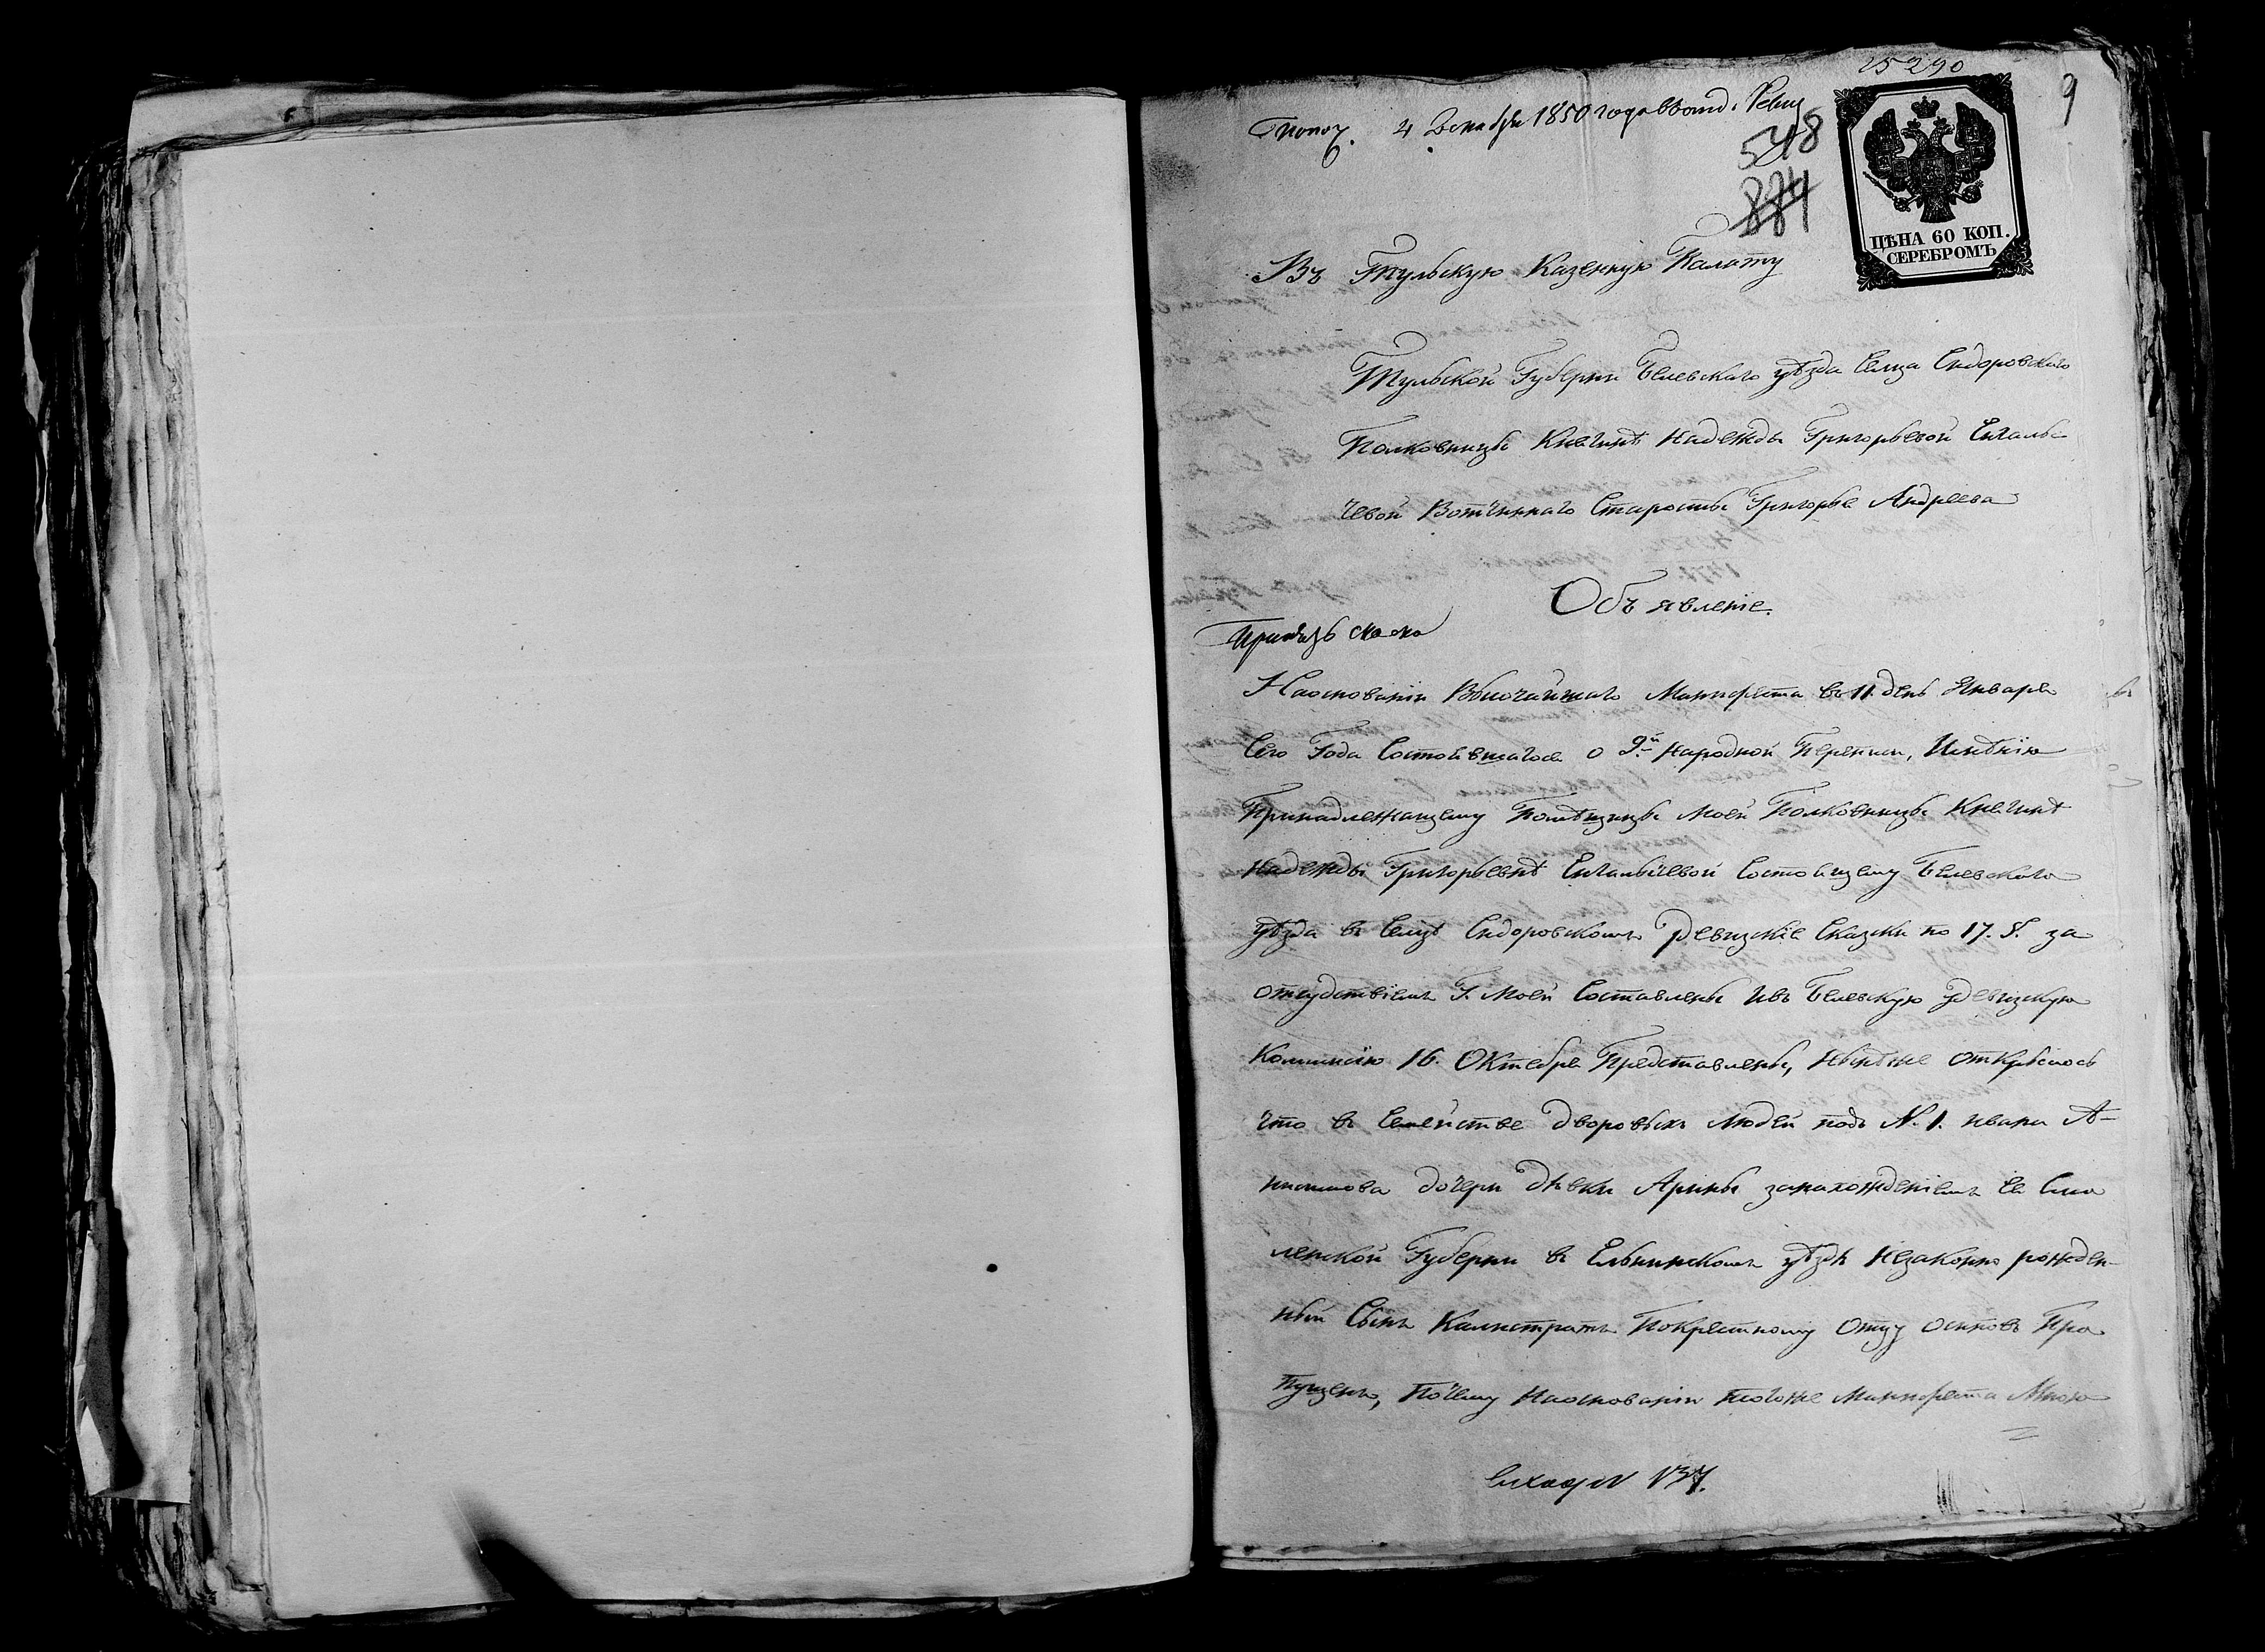 15290
9
Получ. 4 Декабря 1850 года в отд. Ревиз
548
884
ЦѢНА 60 КОП.
СЕРЕБРОМЪ
Въ Тульскую Казенную Палату
Тульской Губерни Белевскаго уѣзда Сельца Сидоровскаго
Полковницы Княгинѣ Надежды Григорьевой Енгалы-
чевой Вотчиннаго Старосты Григорья Андреева
Объявленіе.
На основаніи Высочайшаго Манифеста въ 11 день Января
Сего Года Состоявшагося о 9й народной Переписи, Имѣнію
Принадлежащему Помѣщицы Моей Полковницы Княгинѣ
Надежды Григорьевнѣ Енгалычевой Состоящему Белевскаго
уѣзда въ Сельцѣ Сидоровскомъ Ревизскіе Сказки по 17. д. за
отсудствіемъ Г. Моей Составлены и въ Белевскую Ревизскую
Коммисію 16. Октября Представлены, Нынѣ же открылось
что въ Семействе дворовыхъ людей подъ N. 1. ивана А-
нисимова дочери дѣвки Арины за нахожденіемъ Ея Смо
ленской Губерни въ Ельнинскомъ уѣздѣ Незаконно рожден-
ный Сынъ Калистратъ По крестному Отцу Осиповъ Про
пущенъ, Почему На основаніи того же Манифеста Мною
N 137.